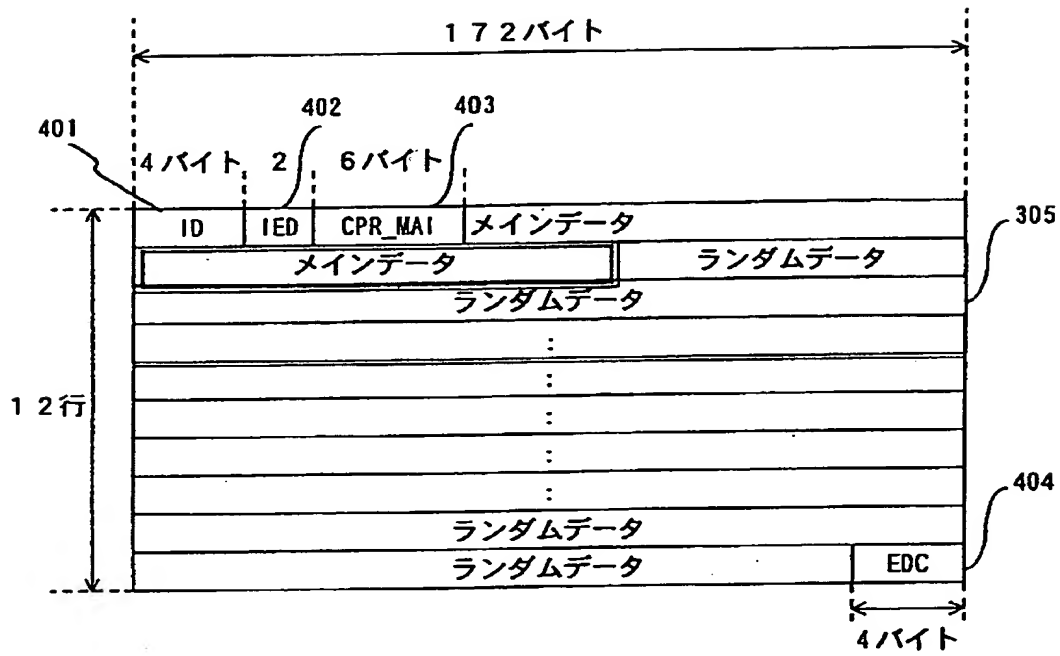 １７２バイト
401
402
403
4バイト
2
6バイト
ID
IED
CPR_MAI
メインデータ
305
メインデータ
ランダムデータ
ランダムデータ
:
:
１２行
:
:
:
404
ランダムデータ
ランダムデータ
EDC
4バイト